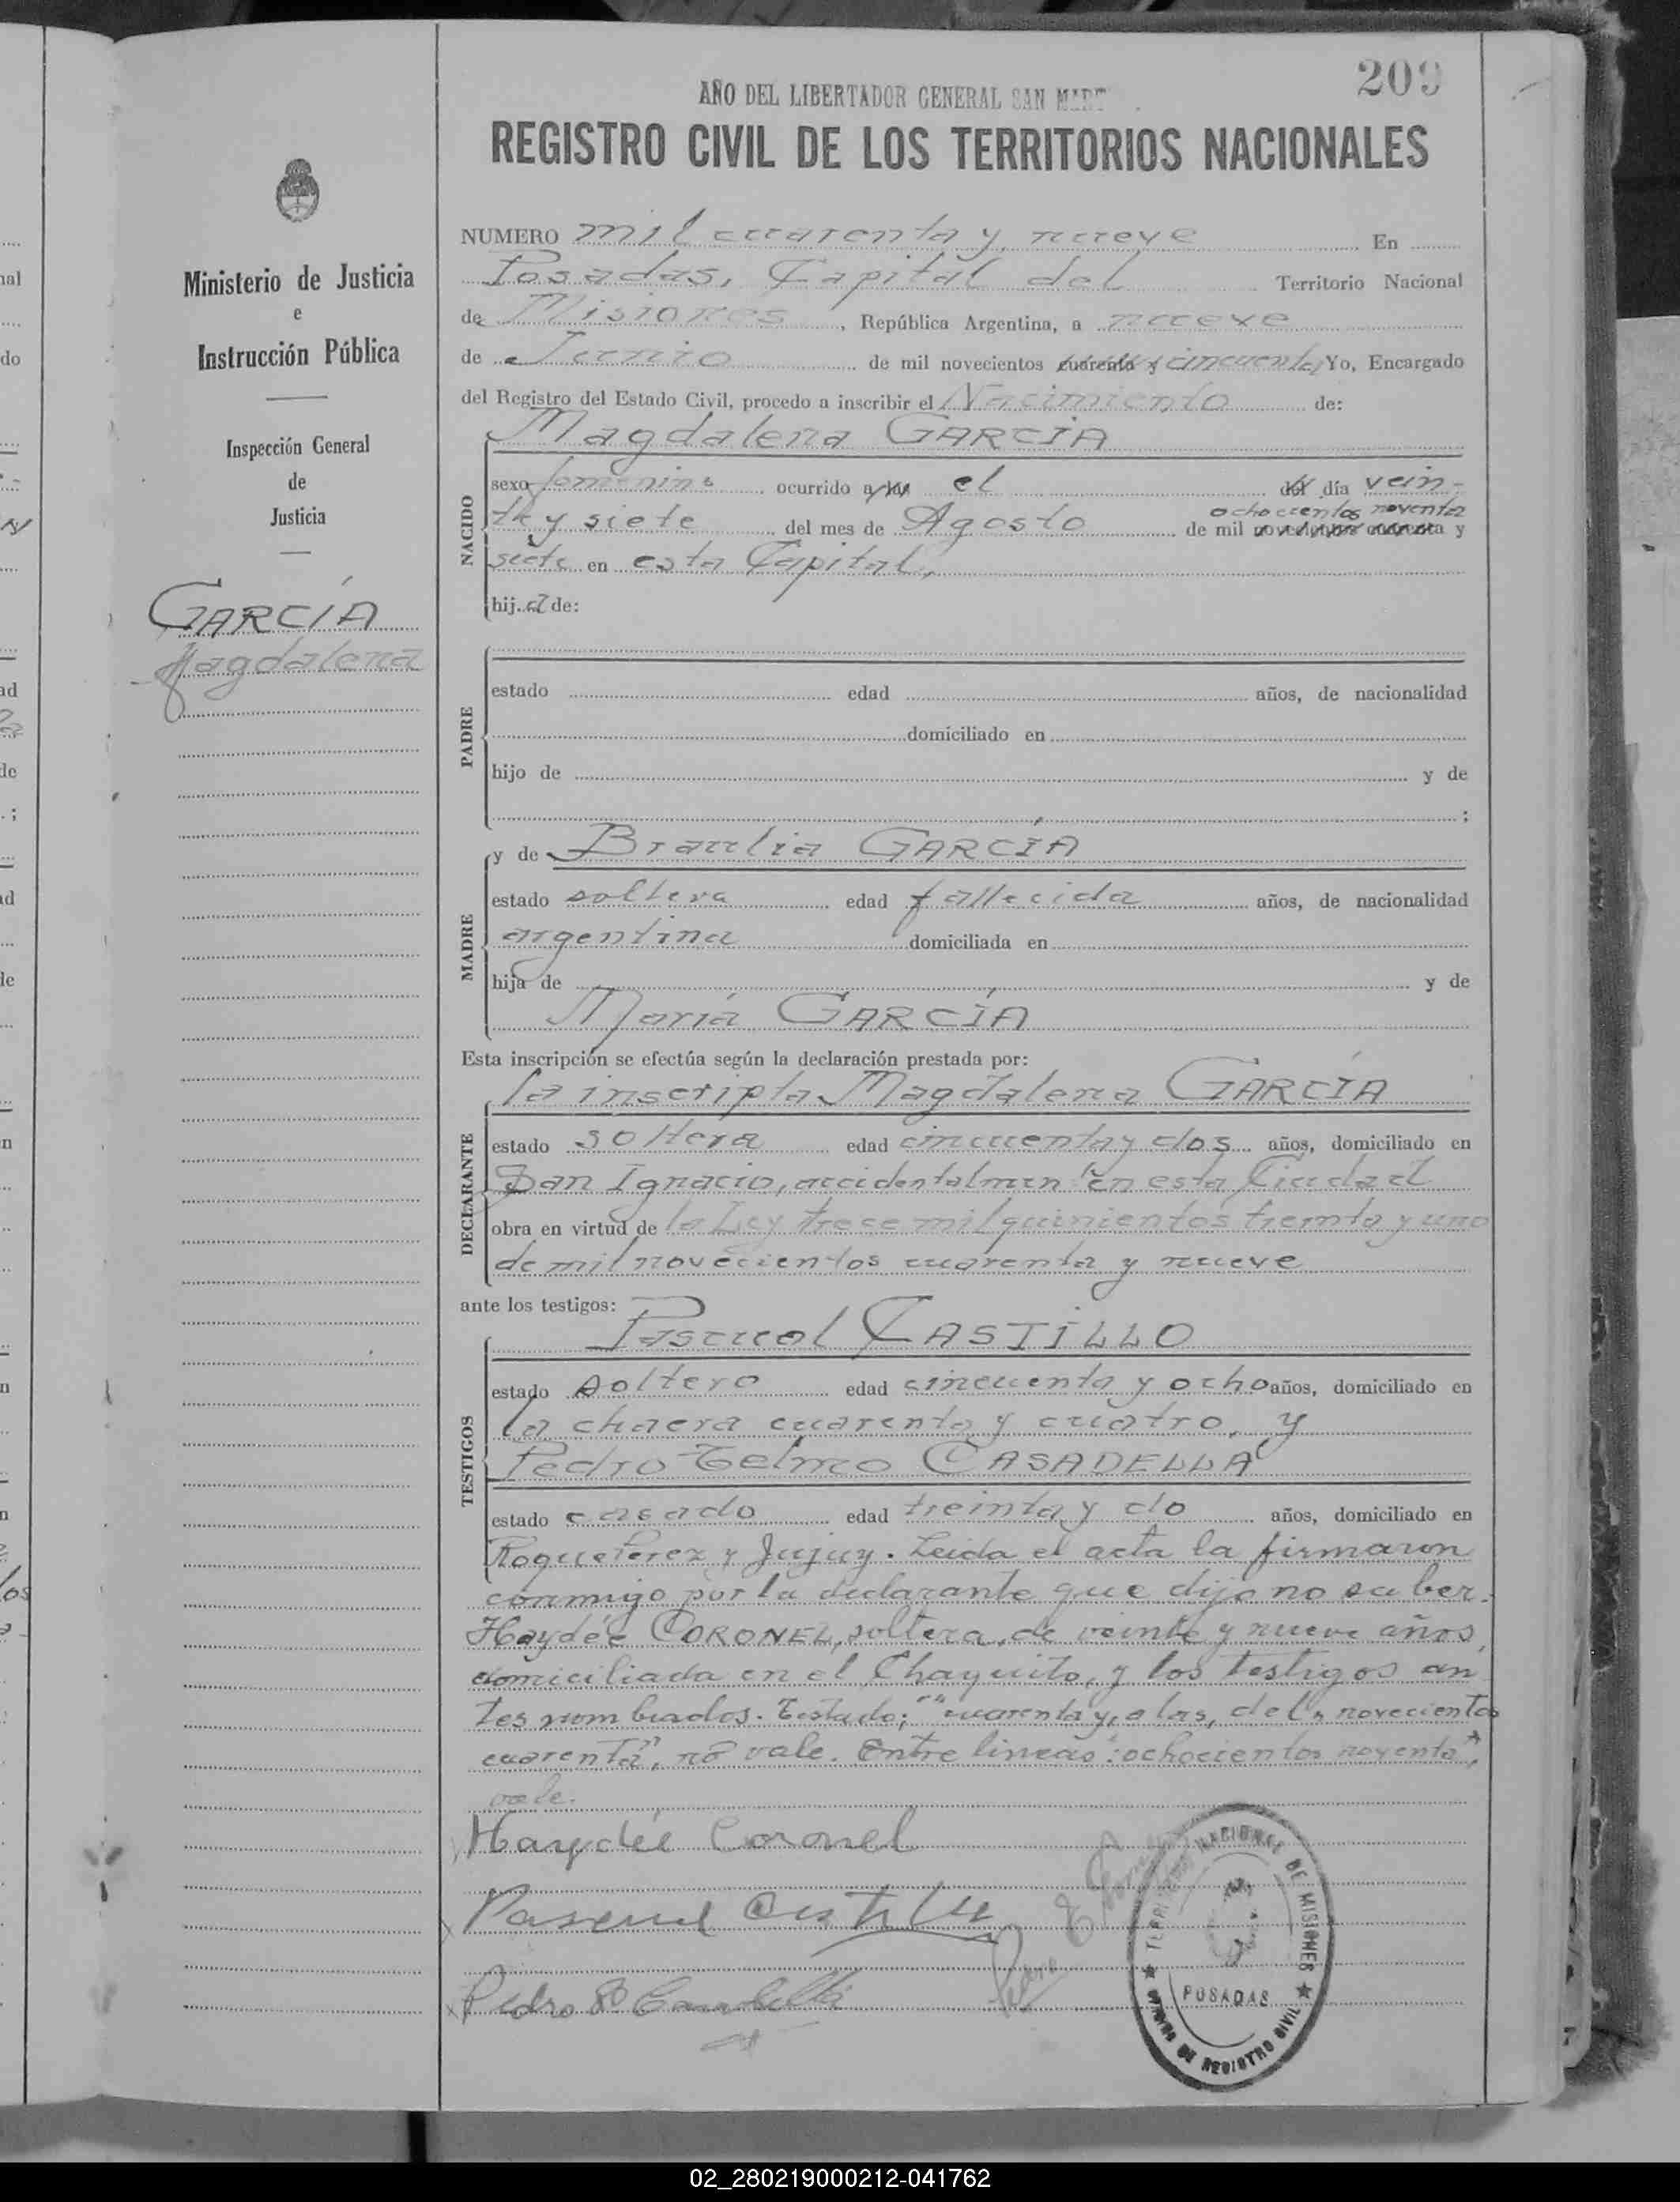 209
AÑO DEL LIBERTADOR GENERAL SAN MART
REGISTRO CIVIL DE LOS TERRITORIOS NACIONALES
Ministerio de Justicia
e
Instrucción Pública
Inspección General
de
Justicia
GARCÍA
Magdalena
NUMERO mil cuarenta y nueve En
Posadas, Capital del Territorio Nacional
de Misiones, República Argentina, a nueve
de Junio de mil novecientos cuarenta y cincuenta, Yo, Encargado
del Registro del Estado Civil, procedo a inscribir el Nacimiento de:
NACIDO
Magdalena GARCÍA
sexo femenino ocurrido a las el del día vein-
ochocientos noventa
te y siete del mes de Agosto de mil novecientos cuarenta y
siete en esta Capital,
hij a de:
PADRE
estado edad años, de nacionalidad
domiciliado en
hijo de y de
;
MADRE
y de Braulia GARCÍA
estado soltera edad fallecida años, de nacionalidad
argentina domiciliada en
hija de y de
María GARCÍA
Esta inscripción se efectúa según la declaración prestada por:
DECLARANTE
la inscripta Magdalena GARCÍA
estado soltera edad cincuenta y dos años, domiciliado en
San Ignacio, accidentalmente en esta Ciudad
obra en virtud de la Ley trece mil quinientos treinta y uno
de mil novecientos cuarenta y nueve
ante los testigos:
TESTIGOS
Pascual CASTILLO
estado soltero edad cincuenta y ocho años, domiciliado en
la chacra cuarenta y cuatro, y
Pedro Telmo CASADELLA
estado casado edad treinta y do años, domiciliado en
Roque Perez y Jujuy. Leida el acta la firmaron
conmigo por la declarante que dijo no saber
Haydée CORONEL, soltera, de veinte y nueve años,
domiciliada en el Chaquito, y los testigos an
tes nombrados. Testado: "cuarenta y, a las, del, novecientos
cuarenta", no vale. Entre lineas: "ochocientos noventa",
vale.
Haydée Coronel
Pascual Castillo
Pedro T Casadella
TERRITORIO NACIONAL DE MISIONES
POSADAS
OFICINA DE REGISTRO CIVIL
02_280219000212-041762